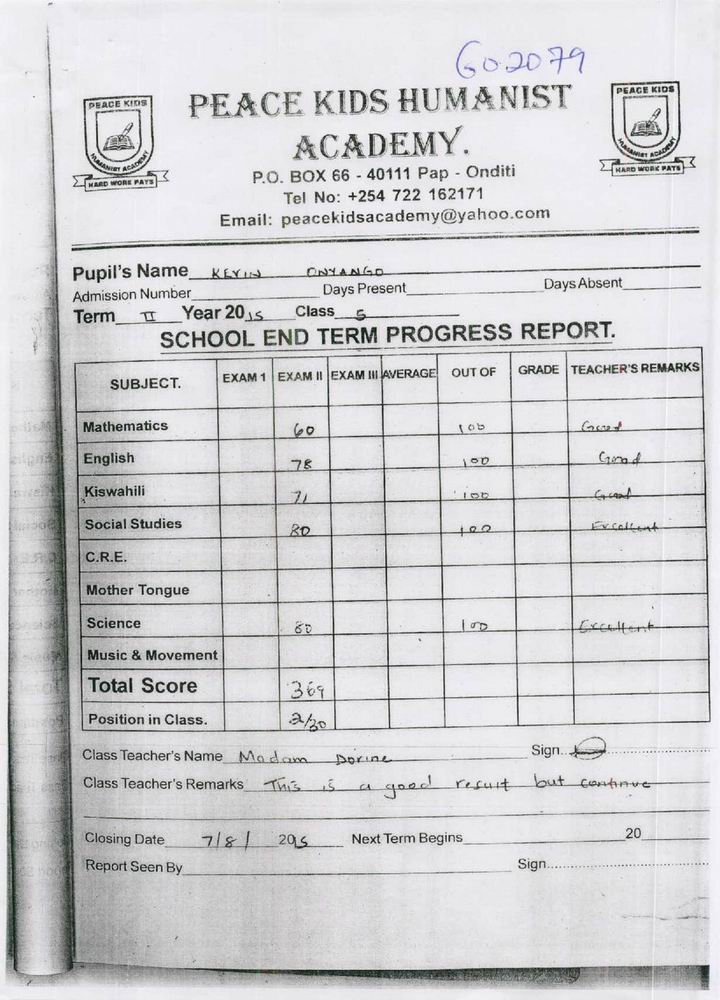 602079
PEACE KIDS
HUMANIST ACADEMY
HARD WORK PAYS
PEACE KIDS HUMANIST
ACADEMY.
PEACE KIDS
HUMANIST ACADEMY
HARD WORK PAYS
P.O. BOX 66 - 40111 Pap - Onditi
Tel No: +254 722 162171
Email: peacekidsacademy@yahoo.com
Pupil's Name KEVIN ONYANGO
Admission Number Days Present Days Absent
Term II Year 2015 Class 5
SCHOOL END TERM PROGRESS REPORT.
SUBJECT. EXAM 1 EXAM II EXAM III AVERAGE OUT OF GRADE TEACHER'S REMARKS
Mathematics 60 100 Good
English 78 100 Good
Kiswahili 71 100 Good
Social Studies 80 100 Excellent
C.R.E.
Mother Tongue
Science 80 100 Excellent
Music & Movement
Total Score 369
Position in Class. 2/30
Class Teacher's Name Madam Dorine Sign.
Class Teacher's Remarks This is a good result but continue
Closing Date 7/8/ 2015 Next Term Begins 20
Report Seen By Sign